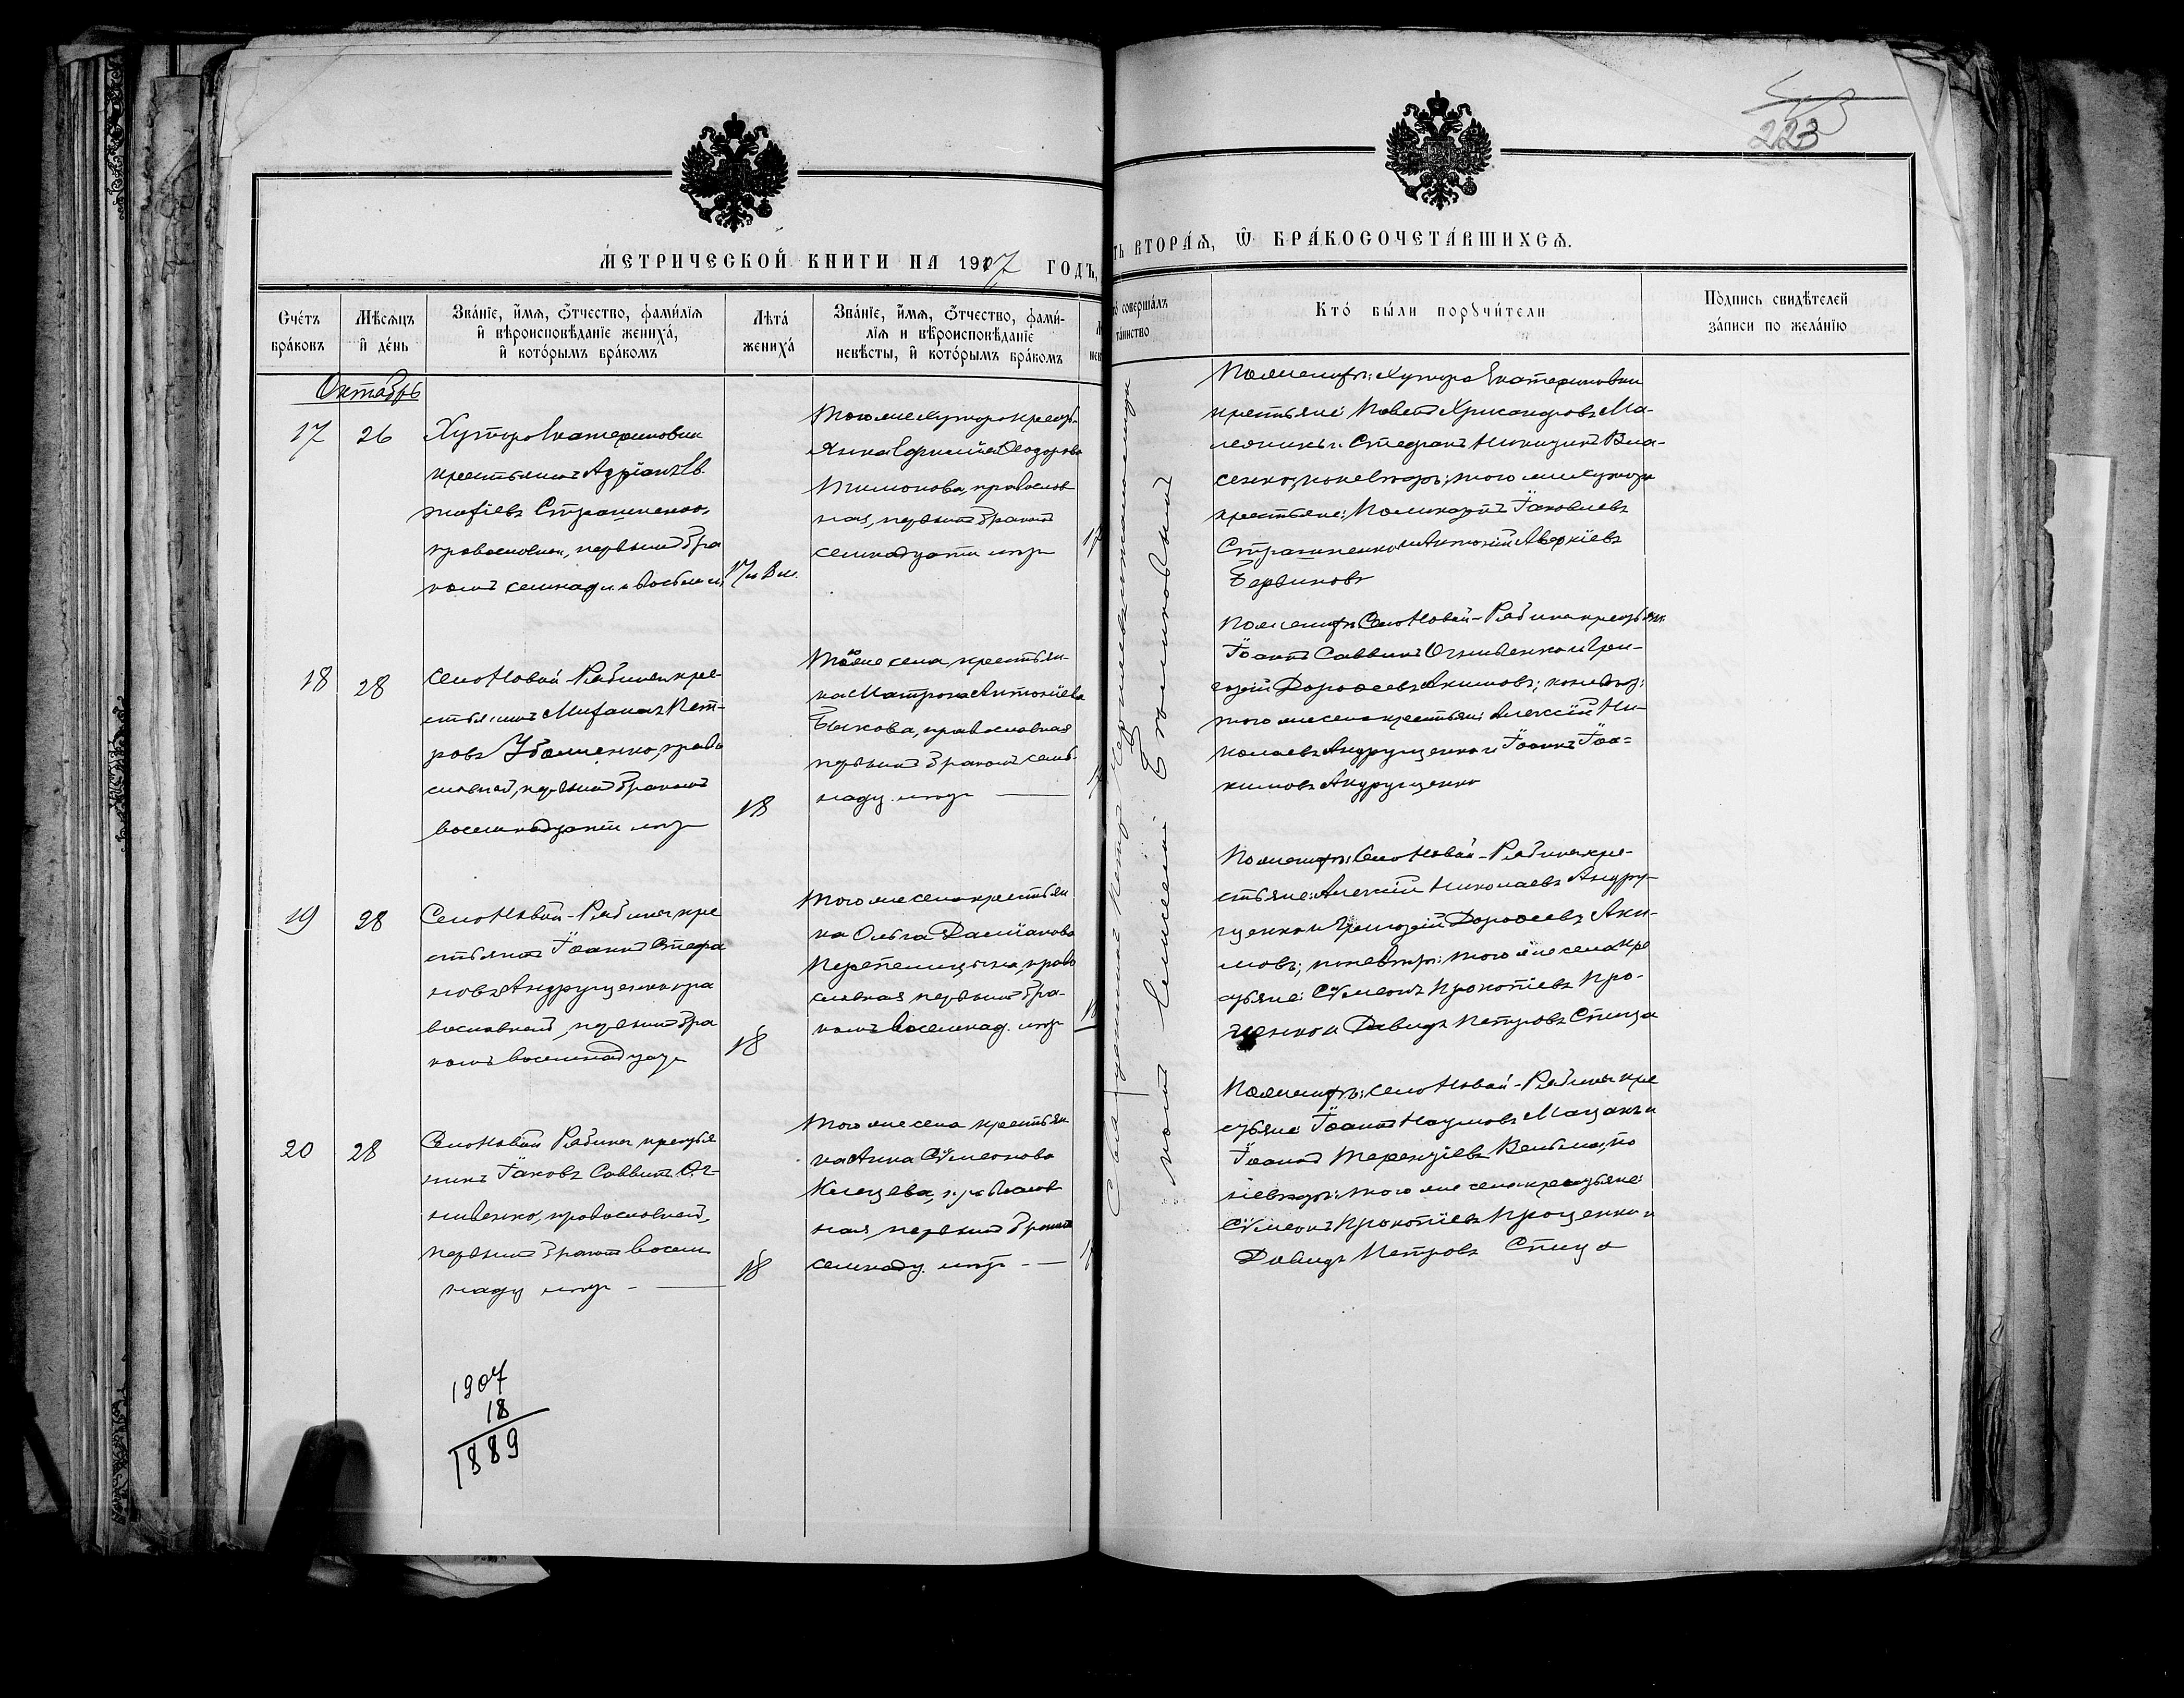 223
МЕТРИЧЕСКОЙ КНИГИ НА 1907 ГОДЪ,
ть ВТОРАѦ, Ѿ БРАКОСОЧЕТАВШИХСѦ.
Счетъ браковъ
Мѣсѧцъ и день
Званіе, имѧ, ѿчество, фамиліѧ
и вѣроисповѣданіе жениха,
и которымъ бракомъ
Лѣта
жениха
Званіе, имѧ, ѿчество, фами-
лія и вѣроисповѣданіе
невѣсты, и которымъ бракомъ
совершалъ
таинство
Кто были поручители
Подпись свидѣтелей
записи по желанію
Октябрь
17
26
Хутора Екатериновки
крестьянинъ Адріанъ Ев
Страшненко,
православн, первымъ бра
комъ семнад л. и восьм м.
17 и 8 м.
Того же хутора кресть
янка Ефимія Ѳеодорова
Тимонова, православ
ная, первымъ бракомъ
семнадцати лѣтъ
17
По женихѣ: хутора Екатериновки
крестьяне: Павелъ Ма-
и Стефанъ Никитинъ Вла-
сенко; по невѣстѣ: того же хутора
крестьяне: Поликарпъ Іаковлевъ
Страшненко и Антоній Аверкіевъ
18
28
Села Новой-Рябины кре-
стьянинъ Митрофанъ Пет-
ровъ, право
славный, первымъ бракомъ
восемнадцати лѣтъ
18
Того же села крестьян-
ка Матрона Антоніева
Быкова, православная
первымъ бракомъ семь-
надц. лѣтъ
По женихѣ: села Новой-Рябины крестьян.
Іоаннъ Саввинъ Огніивенко и Гри-
горій Дороѳеевъ Акимовъ; по невѣс:
того же села крестьян: Алексій Ни-
колаевъ Андрущенко и Іоаннъ Іоа-
кимовъ Андрущенко
19
28
Села Новой-Рябины кре
стьянинъ Іоаннъ Стефа
новъ Андрущенко пра
вославный, первымъ бра
комъ восемнадцати
18
Того же села крестьян
ка Ольга Даміанова
Перепелицына, право
славная первымъ бра-
комъ восемнад. лѣтъ
18
По женихѣ: села Новой-Рябины кре-
стьяне: Алексій Николаевъ Андру-
щенко и Григорій Дороѳеевъ Аки-
мовъ; по невѣстѣ: того же села кре
стьяне: Сѵмеонъ Прокопіевъ Про-
ценко и Давидъ Петровъ Спица
20
28
Села Новой Рябины крестья
нинъ Іаковъ Саввинъ Ог-
нивенко, православный,
первымъ бракомъ восем
надц лѣтъ
18
Того же села крестьян
ка Анна Сѵмеонова
православ
ная первымъ бракомъ
семнадц. лѣтъ
17
По женихѣ: села Новой-Рябины кре
стьяне: Іоаннъ Наумовъ Мацакъ и
Іоаннъ Терентіевъ Вельма; по
невѣстѣ: того же села крестьяне:
Сѵмеонъ Прокопіевъ Проценко и
Давидъ Петровъ Спица
Священникъ Петръ
1907
18
1889